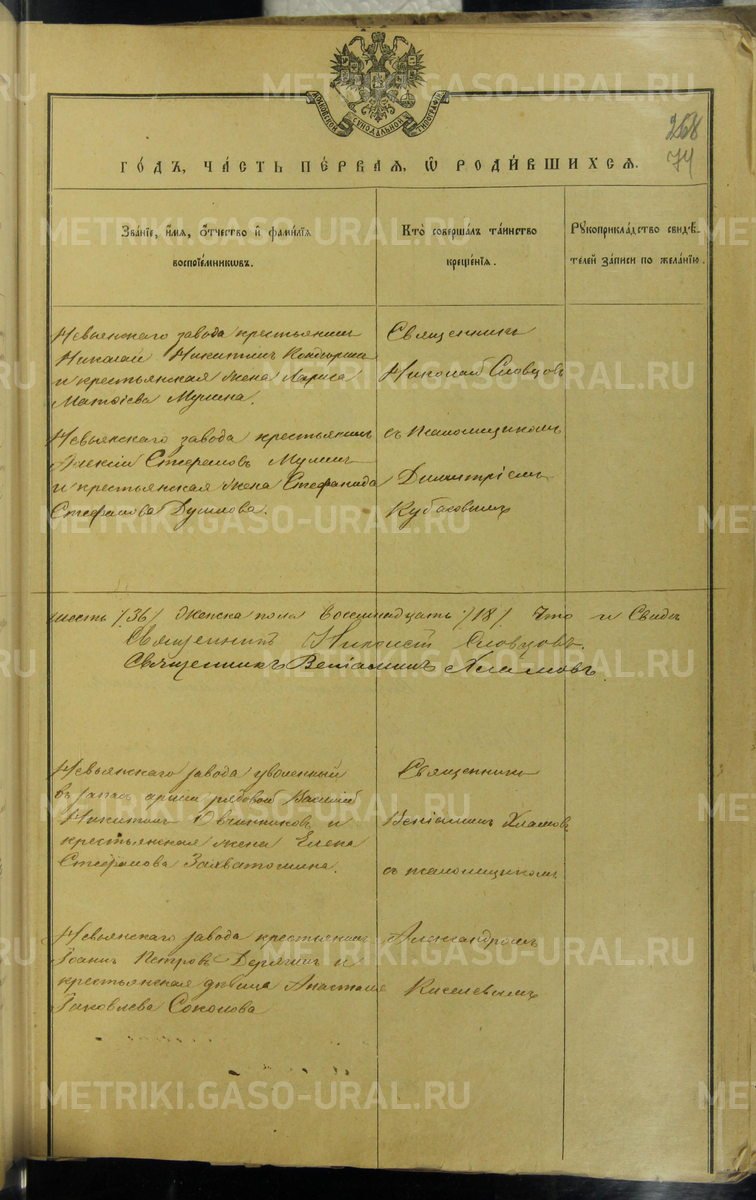 МОСКОВСКОЙ СѴНОДАЛЬНОЙ ТИПОГРАФІИ
268
74
ГОДЪ, ЧАСТЬ ПЕРВАЯ, Ѡ РОДИВШИХСЯ.
Званіе, имя, отчество и фамилія воспріемниковъ.
Кто совершалъ таинство крещенія.
Рукоприкладство свидѣтелей записи по желанію.
Невьянскаго завода крестьянинъ
Николай Никитинъ
и крестьянская жена Лариса
Матѳіева Мулина.
Священникъ
Николай Словцовъ
Невьянскаго завода крестьянинъ
Алексій Стефановъ Мулинъ
и крестьянская жена Стефанида
Стефанова
съ псаломщикомъ
Димитріемъ
Кубасовымъ
шесть /36/ женска пола восемнадцать /18/ Что и Свидѣ
Священникъ Николай Словцовъ.
Священникъ Веніаминъ Хламовъ.
Невьянскаго завода уволенный
въ запасъ арміи рядовой Василій
Никитинъ Овчинниковъ и
крестьянская жена Елена
Стефанова Захватошина.
Священникъ
Веніаминъ Хламовъ
съ псаломщикомъ
Невьянскаго завода крестьянинъ
Іоаннъ Петровъ Дерягинъ и
крестьянская дѣвица Анастасія
Іаковлева Соколова
Александромъ
Киселевымъ
METRIKI.GASO-URAL.RU